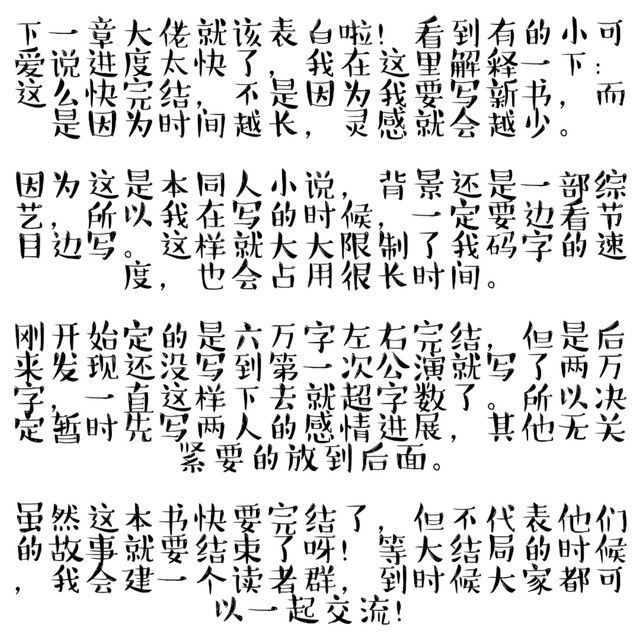 下一章大佬就该表白啦！看到有的小可
爱说进度太快了，我在这里解释一下：
这么快完结，不是因为我要写新书，而
是因为时间越长，灵感就会越少。
因为这是本同人小说，背景还是一部综
艺，所以我在写的时候，一定要边看节
目边写。这样就大大限制了我码字的速
度，也会占用很长时间。
刚开始定的是六万字左右完结，但是后
来发现还没写到第一次公演就写了两万
字，一直这样下去就超字数了。所以决
定暂时先写两人的感情进展，其他无关
紧要的放到后面。
虽然这本书快要完结了，但不代表他们
的故事就要结束了呀！等大结局的时候
，我会建一个读者群，到时候大家都可
以一起交流！